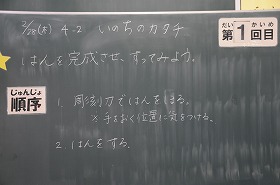 2/28(木) 4-2 いのちのカタチ
だい かいめ
第1回目
はんを完成させ、すってみよう。
じゅんじょ
順序
1. 彫刻刀ではんをほる。
※手をおく位置に気をつける。
2. はんをする。